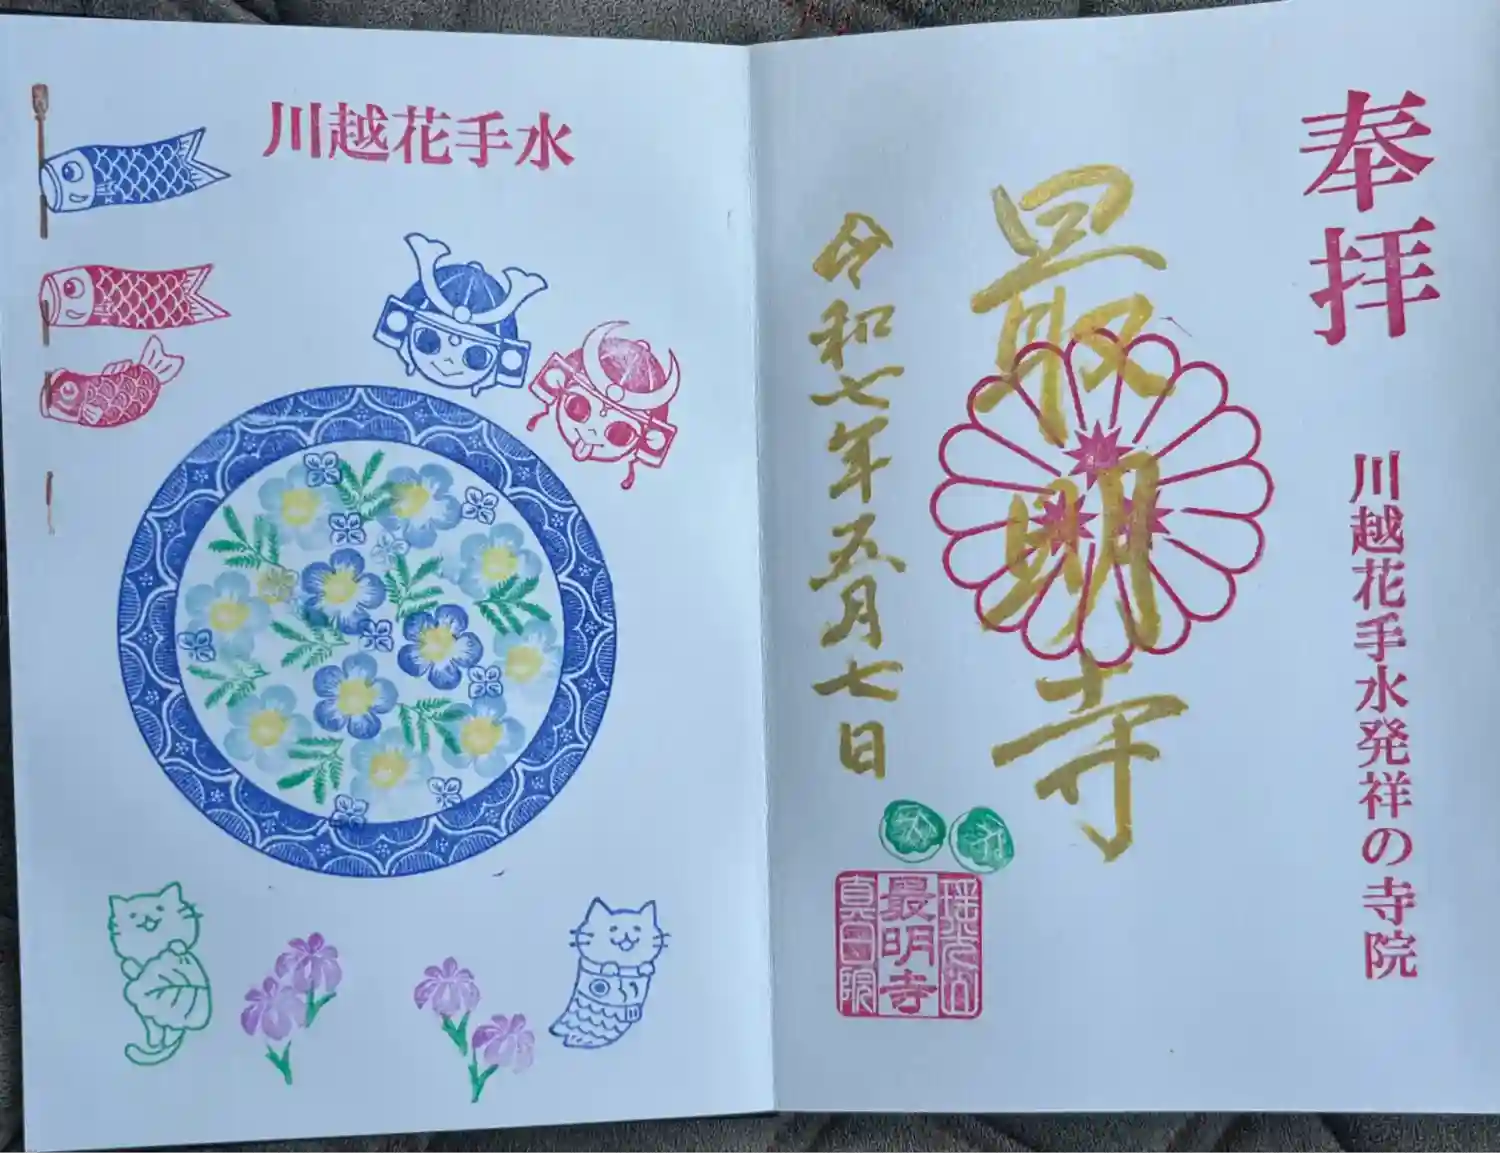 川越花手水
奉拝
川越花手水発祥の寺院
最明寺
令和七年五月七日
瑶光山
最明寺
真日院